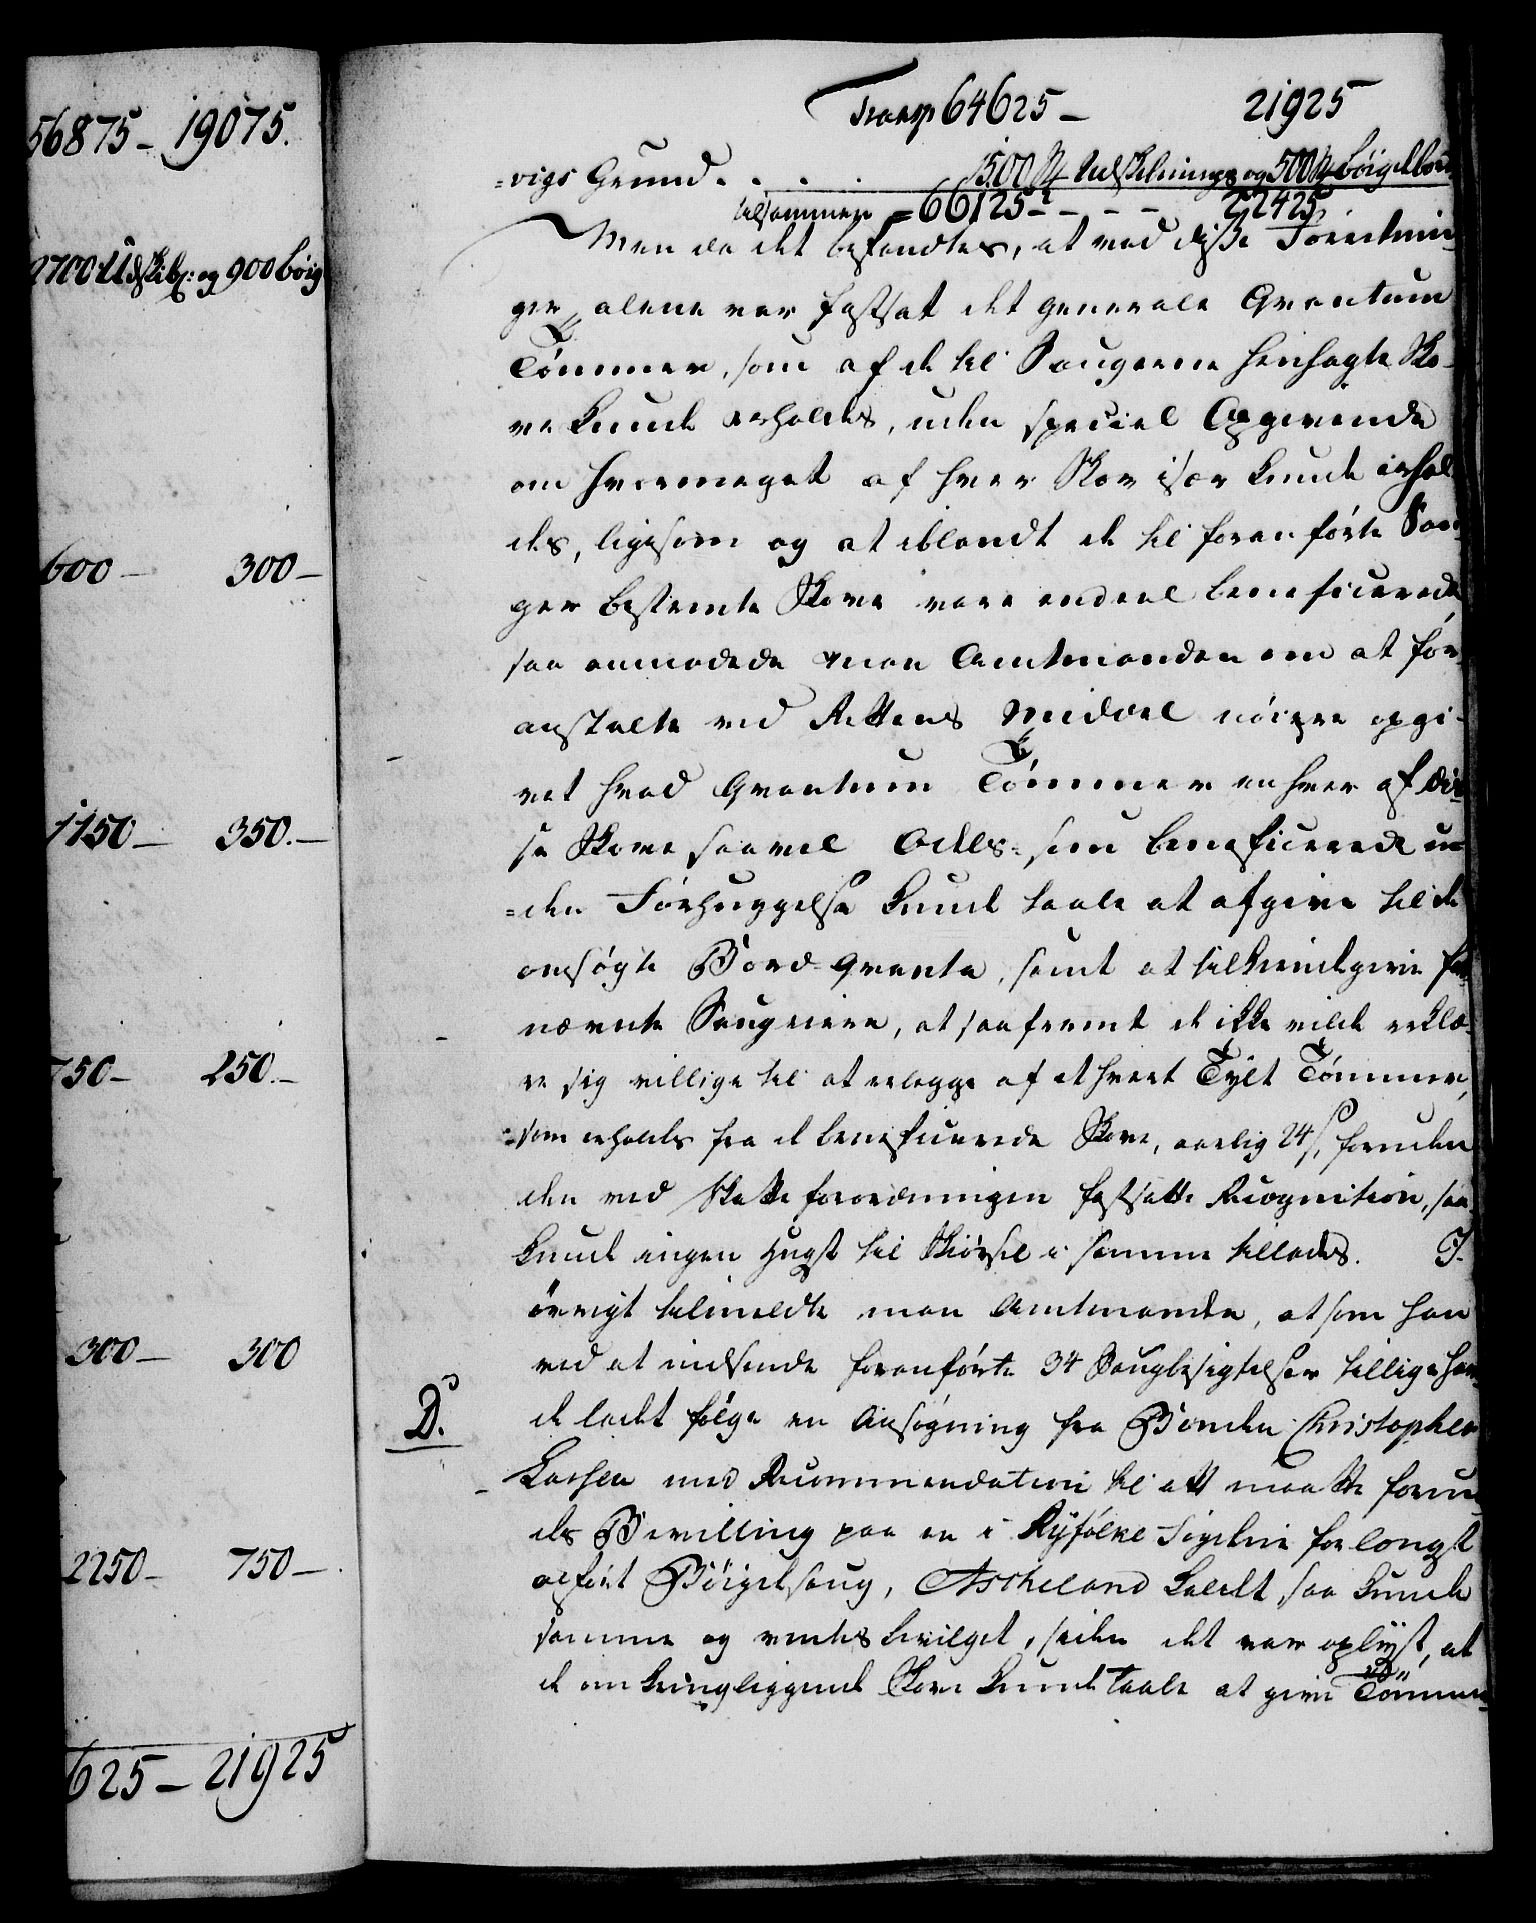 56875 - 19075.
2700 Udskibs: og 900 böig
600 - 300 -
1150 - 350. -
750 - 250. -
300 - 300
2250 - 750 -
625 - 21925
Transp 64625 - 21925
=vigs Grund . . . . 1500 Udskibnings og 500 böigelbord
tilsammen = 66125 - - - - 22425
Men da det befandtes, at ved disse Forretnin-
ger alene var fastsat det generale Qvantum
Tömmer, som af de til Saugerne henlagte Sko-
ve kunde erholdes, uden speciel Opgivende
om hvormeget af hver Skov især kunde erhol-
des, ligesom og at iblandt de til foranförte Sau-
ger bestemte Skove vare endeel beneficerede,
saa anmodede man Amtmanden om at for-
anstalte ved Rettens Middel nöiere opgi-
vet hvad Qvantum Tömmer enhver af dis-
se Skove saavel Odels- som beneficerede u-
=den Forhuggelse kunde taale at afgive til de
ansögte Bord-Qvanta, samt at tilkiendegive for-
nævnte Saugeiere, at saafremt de ikke vilde erklæ-
re sig villige til at erlegge af ethvert Tylt Tömmer,
som erholdes fra de beneficerede Skove, aarlig 24 s, foruden
den ved Skatteforordningen fastsatte Recognition, saa
kunde ingen Hugst til Skiörsel i samme tillades. I-
övrigt tilmeldte man Amtmanden, at som han
ved at indsende foranförte 34 Saugbesigtelser tillige hav-
D.
de ladet fölge en Ansögning fra Bonden Christopher
Larsen med Recommendation til at maatte forun-
des Bevilling paa en i Ryfölke Fogderie for longst
opfört Böigelsaug, Ascheland kaldt, saa kunde
samme og ventes bevilget, siden det var oplyst, at
de omkringliggende Skove kunde taale at give Tömmer